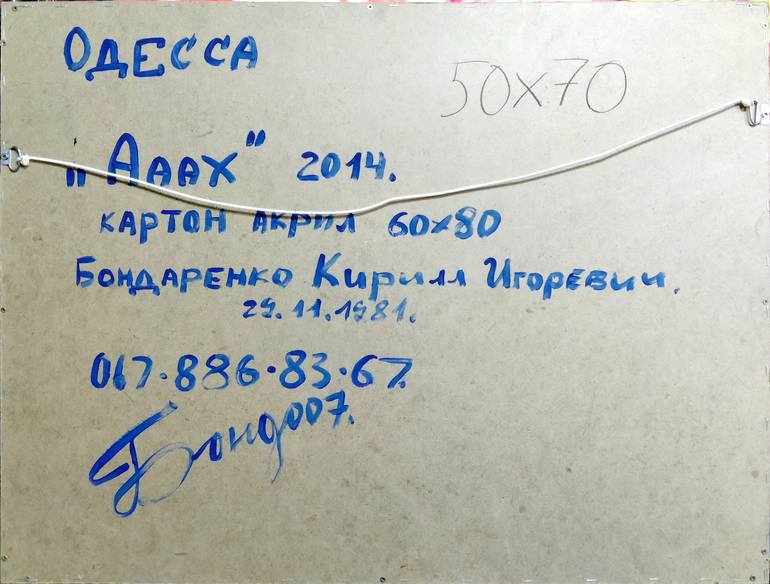 ОДЕССА
50х70
„Аaах" 2014.
картон акрил 60х80
Бондаренко Кирилл Игоревич.
29.11.1981.
067·886·83·67.
Бонд007.